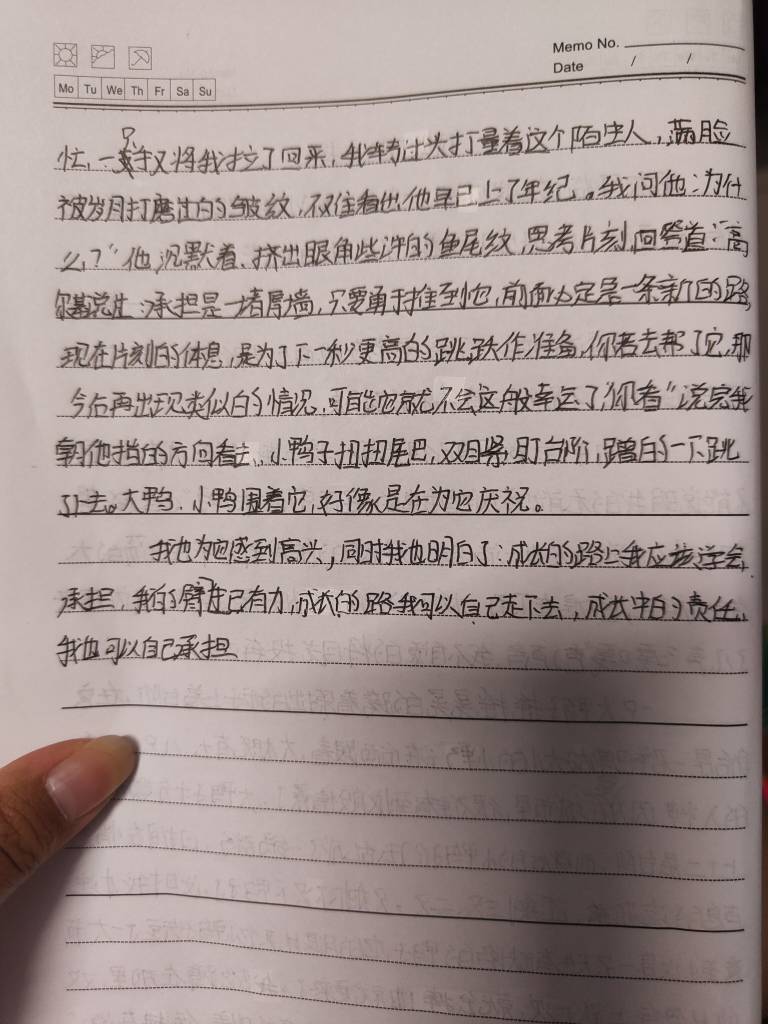 Memo No.
Date / /
Mo Tu We Th Fr Sa Su
忙,一只手又将我拉了回来,我转过头打量着这个陌生人,满脸
被岁月打磨过的皱纹,不住看出他早已上了年纪。我问他:"为什
么?"他沉默着、挤出眼角些许的鱼尾纹,思考片刻,回答道:"高
尔基说过:承担是一堵厚墙,只要勇于推到它,前面必定是一条新的路,
现在片刻的休息,是为了下一秒更高的跳跃作准备,你若去帮了它,那
今后再出现类似的情况,可能它就不会这般幸运了"你看"说完我
朝他指的方向看去,小鸭子扭扭尾巴,双目紧盯台阶,蹭的一下跳
了上去。大鸭、小鸭围着它,好像是在为它庆祝。
我也为它感到高兴,同时我也明白了:成长的路上我应该学会
承担,我的臂膀已有力,成长的路我可以自己走下去,成长中的责任,
我也可以自己承担